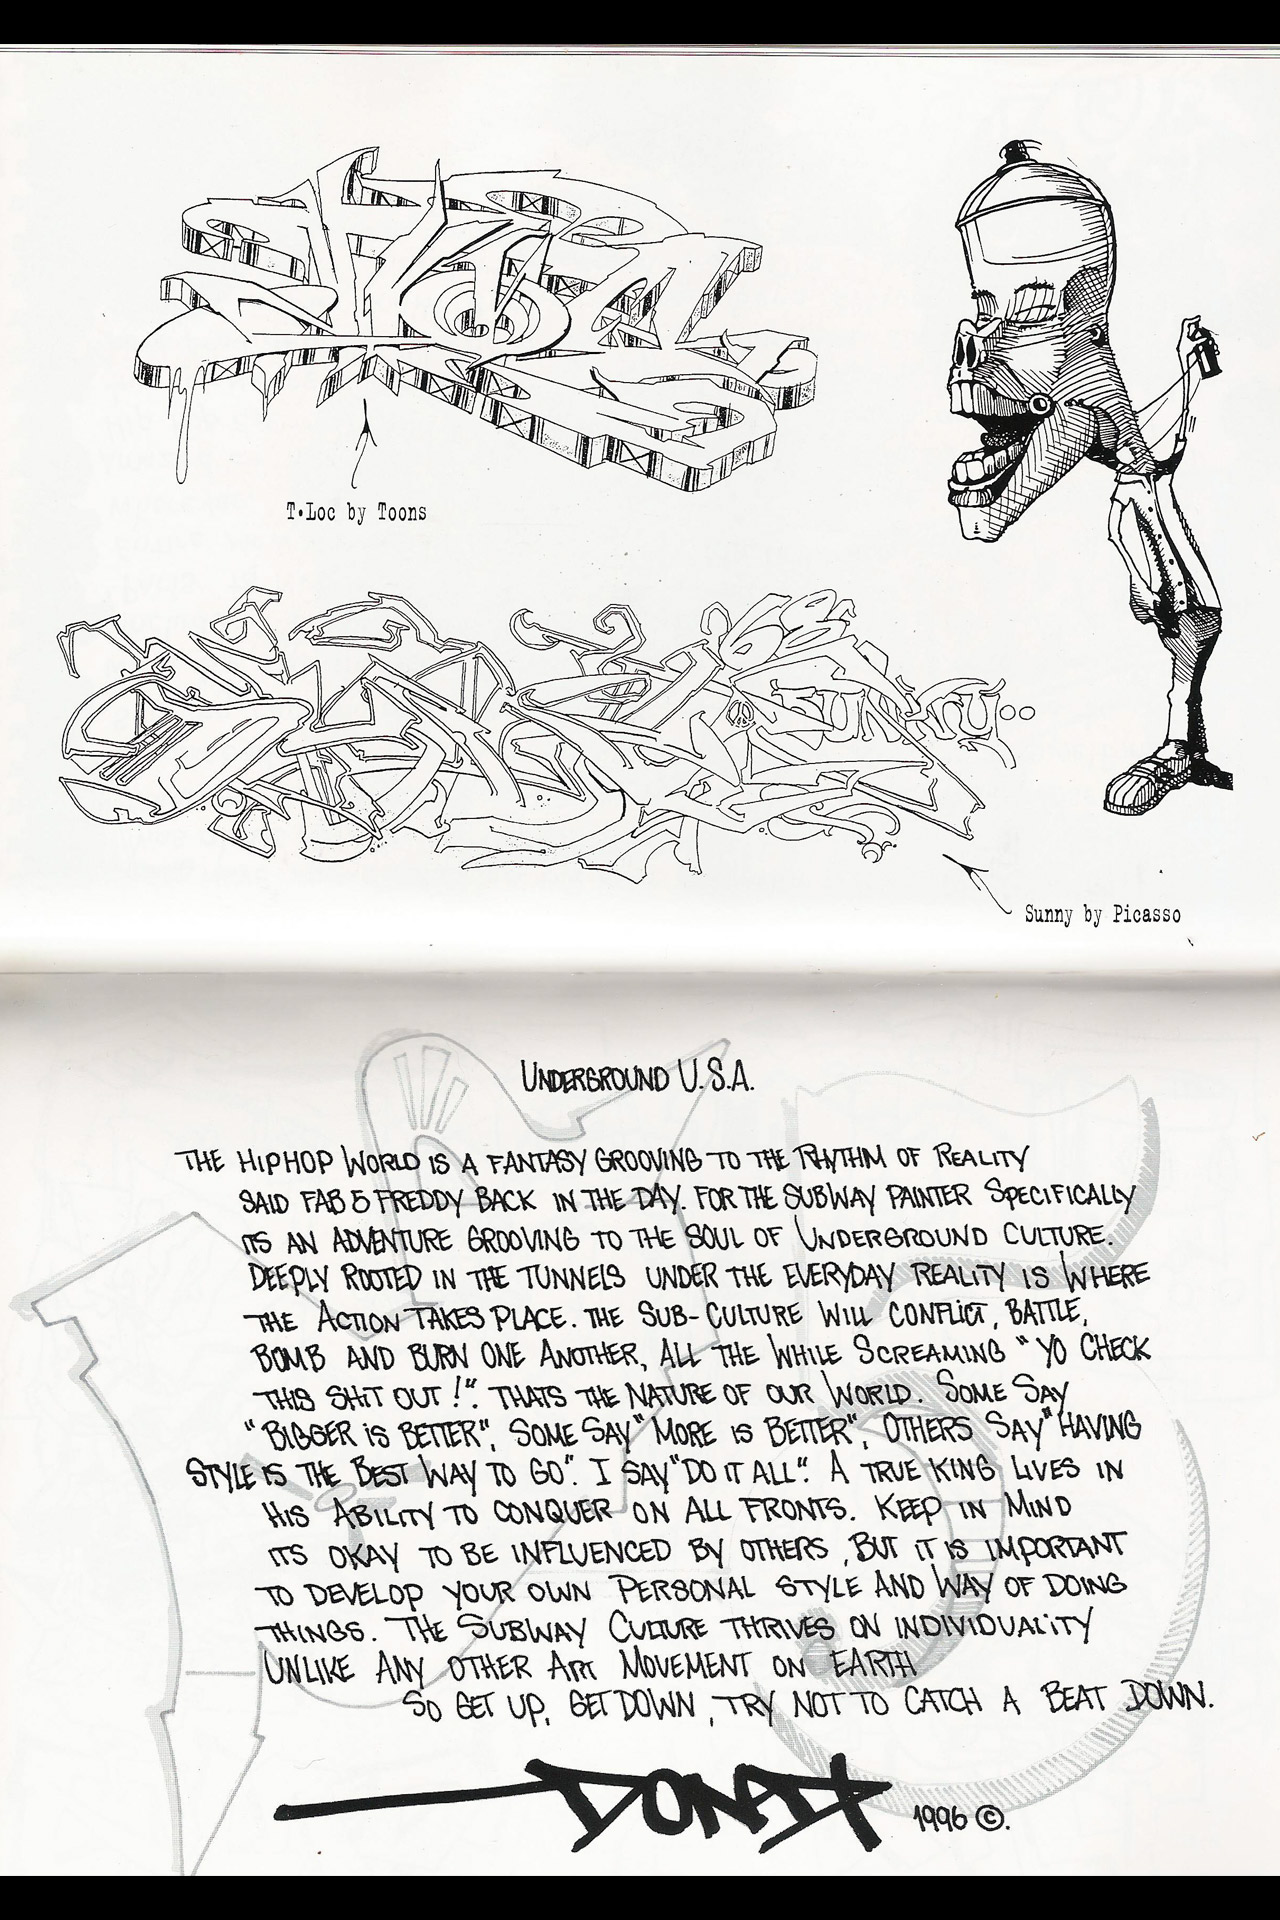 T•Loc by Toons
FUNKY
Sunny by Picasso
UNDERGROUND U.S.A.
THE HIPHOP WORLD IS A FANTASY GROOVING TO THE RHYTHM OF REALITY
SAID FAB 5 FREDDY BACK IN THE DAY. FOR THE SUBWAY PAINTER SPECIFICALLY
ITS AN ADVENTURE GROOVING TO THE SOUL OF UNDERGROUND CULTURE.
DEEPLY ROOTED IN THE TUNNELS UNDER THE EVERYDAY REALITY IS WHERE
THE ACTION TAKES PLACE. THE SUB-CULTURE WILL CONFLICT, BATTLE,
BOMB AND BURN ONE ANOTHER, ALL THE WHILE SCREAMING "YO CHECK
THIS SHIT OUT!" THATS THE NATURE OF OUR WORLD. SOME SAY
"BIGGER IS BETTER", SOME SAY "MORE IS BETTER", OTHERS SAY "HAVING
STYLE IS THE BEST WAY TO GO". I SAY "DO IT ALL". A TRUE KING LIVES IN
HIS ABILITY TO CONQUER ON ALL FRONTS. KEEP IN MIND
ITS OKAY TO BE INFLUENCED BY OTHERS, BUT IT IS IMPORTANT
TO DEVELOP YOUR OWN PERSONAL STYLE AND WAY OF DOING
THINGS. THE SUBWAY CULTURE THRIVES ON INDIVIDUALITY
UNLIKE ANY OTHER ART MOVEMENT ON EARTH
SO GET UP, GET DOWN, TRY NOT TO CATCH A BEAT DOWN.
1996 ©.